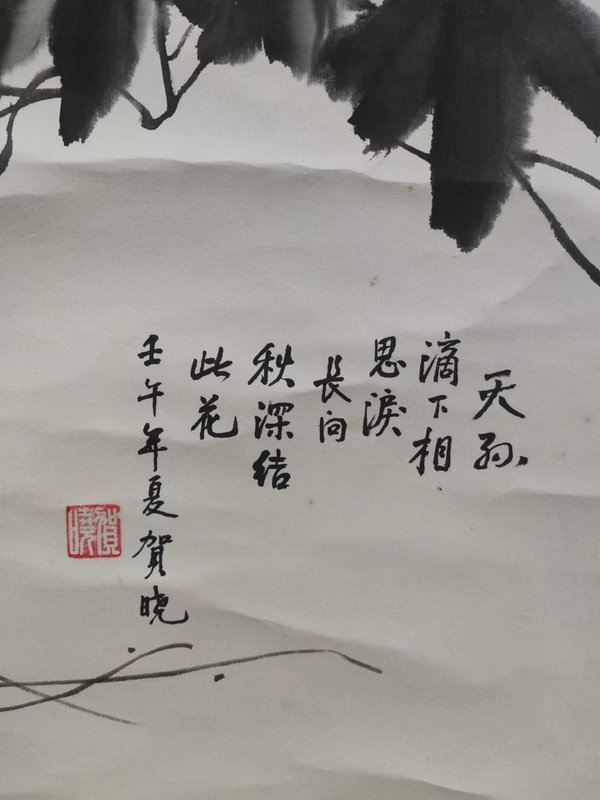 天孙
滴下相
思淚
长向
秋深结
此花
壬午年夏贺晓
贺晓